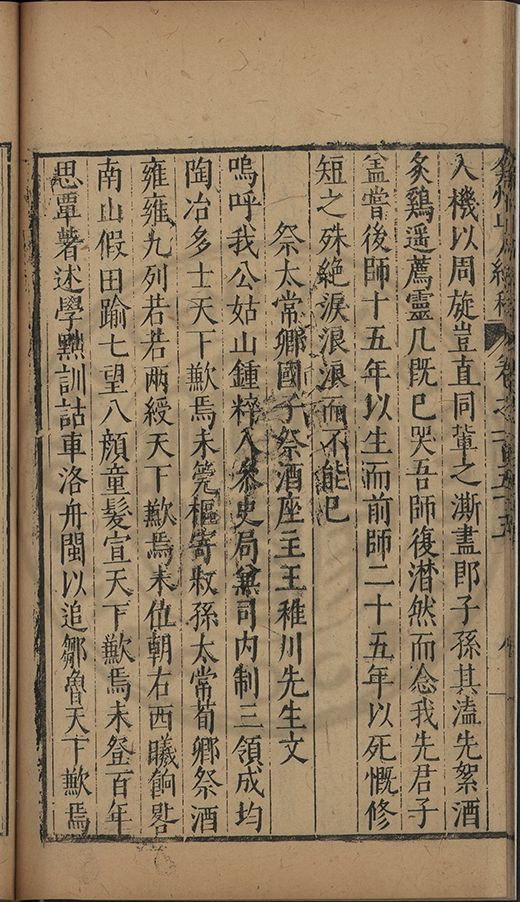 弇州山人續稿 卷之一百五十五
人機以周旋豈直同輩之澌盡卽子孫其溘先絮酒
炙鷄遥薦靈几旣已哭吾師復潸然而念我先君子
葢嘗後師十五年以生而前師二十五年以死慨修
短之殊絶淚浪浪而不能已
祭太常卿國子祭酒座主王稚川先生文
嗚呼我公姑山鍾粹入叅史局兼司内制三領成均
陶冶多士天下歉焉未筦樞寄敉孫太常荀卿祭酒
雍雍九列若若兩綬天下歉焉未位朝右西曦餉晷
南山假田踰七望八顔童髮宣天下歉焉未登百年
思覃著述學㸃訓詁車洛舟閩以追鄒魯天下歉焉